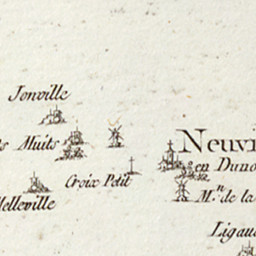 Jonville
Neuvi
es Muits
en Duno
Croix Petit
Melleville
M.n de la
Ligau